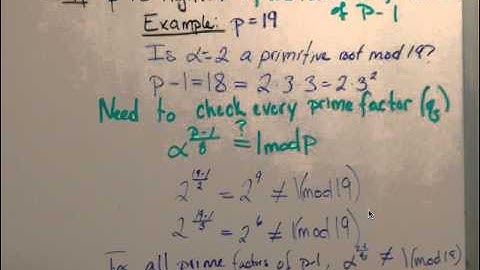 of P-1
Example: p=19
Is α=2 a primitive root mod 19?
P-1=18 = 2·3·3=2·3²
Need to check every prime factor (q's)
α^((p-1)/q) ?= 1 mod p
2^((19-1)/2) = 2⁹ ≠ 1(mod 19)
2^((19-1)/3) = 2⁶ ≠ 1(mod 19)
For all prime factors of p-1, ≠ 1(mod 19)